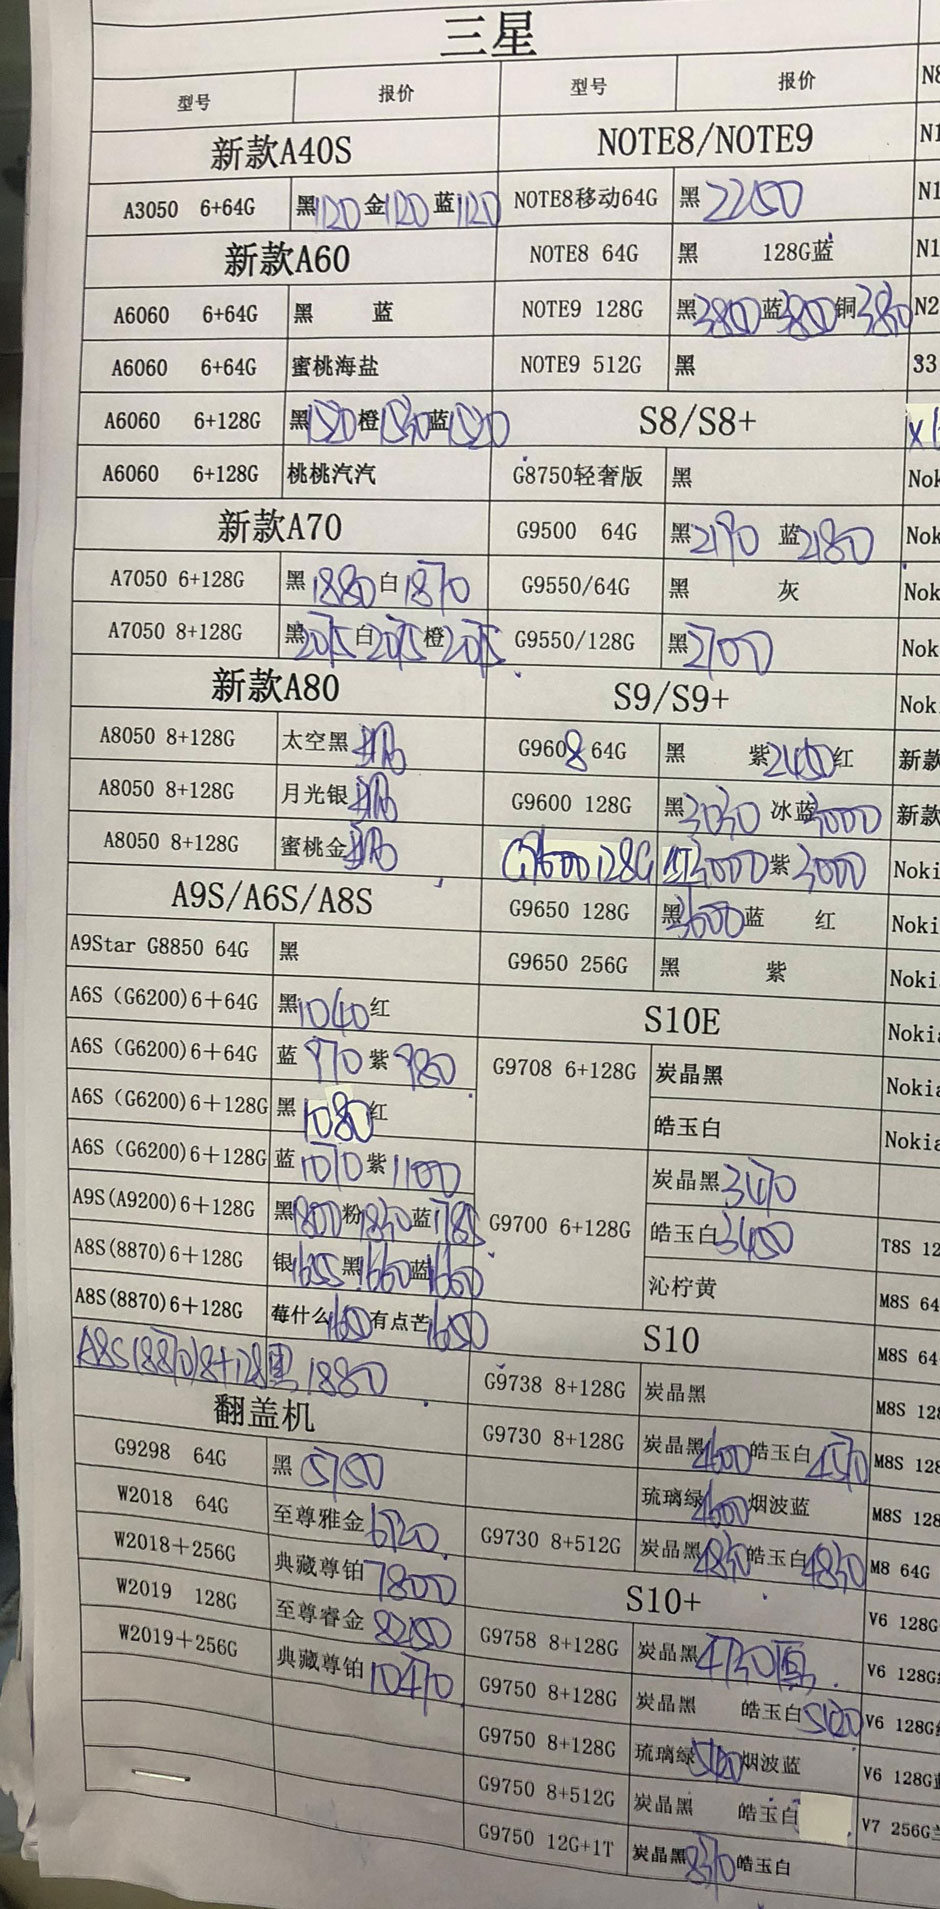 三星
型号 报价 型号 报价
新款A40S
A3050 6+64G 黑1120 金1120 蓝1120
新款A60
A6060 6+64G 黑 蓝
A6060 6+64G 蜜桃海盐
A6060 6+128G 黑 橙 蓝
A6060 6+128G 桃桃汽汽
新款A70
A7050 6+128G 黑1880 白1870
A7050 8+128G 黑2075 白2075 橙2075
新款A80
A8050 8+128G 太空黑
A8050 8+128G 月光银
A8050 8+128G 蜜桃金
A9S/A6S/A8S
A9Star G8850 64G 黑
A6S (G6200)6+64G 黑1040 红
A6S (G6200)6+64G 蓝970 紫980
A6S (G6200)6+128G 黑1080 红
A6S (G6200)6+128G 蓝1070 紫1100
A9S(A9200)6+128G 黑1800 粉1830 蓝1785
A8S(8870)6+128G 银1655 黑1660 蓝1660
A8S(8870)6+128G 莓什么1650 有点芒1650
A8S(8870)8+128黑 1880
翻盖机
G9298 64G 黑 5750
W2018 64G 至尊雅金 6720
W2018+256G 典藏尊铂 7800
W2019 128G 至尊睿金
W2019+256G 典藏尊铂 10470
NOTE8/NOTE9
NOTE8移动64G 黑 2250
NOTE8 64G 黑 128G蓝
NOTE9 128G 黑3800 蓝3800 铜
NOTE9 512G 黑
S8/S8+
G8750轻奢版 黑
G9500 64G 黑2190 蓝2180
G9550/64G 黑 灰
G9550/128G 黑2700
S9/S9+
G9608 64G 黑 紫2450 红
G9600 128G 黑3030 冰蓝3000
G9600 128G 红3000 紫3000
G9650 128G 黑3600 蓝 红
G9650 256G 黑 紫
S10E
G9708 6+128G 炭晶黑
皓玉白
G9700 6+128G 炭晶黑3470
皓玉白3450
沁柠黄
S10
G9738 8+128G 炭晶黑
G9730 8+128G 炭晶黑4600 皓玉白4570
琉璃绿4600 烟波蓝
G9730 8+512G 炭晶黑4830 皓玉白4830
S10+
G9758 8+128G 炭晶黑4730
G9750 8+128G 炭晶黑 皓玉白5120
G9750 8+128G 琉璃绿 烟波蓝
G9750 8+512G 炭晶黑 皓玉白
G9750 12G+1T 炭晶黑8370 皓玉白
N8
N1
N1
N1
N2
33
Nok
Nok
Nok
Nok
Noki
新款
新款
Noki
Noki
Noki
Nokia
Nokia
Nokia
T8S 12
M8S 64
M8S 64
M8S 128
M8S 128
M8S 128
M8 64G
V6 128G
V6 128G
V6 128G
V6 128G
V7 256G